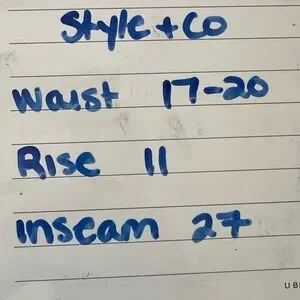 Style + Co
Waist 17-20
Rise 11
Inseam 27